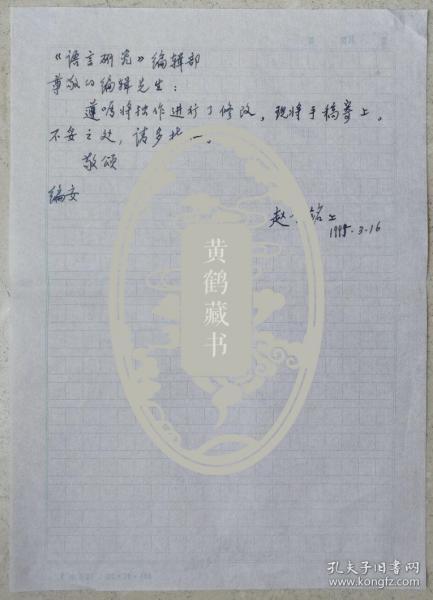 《语言研究》编辑部
尊敬的编辑先生：
遵嘱将拙作进行了修改，现将手稿寄上。
不妥之处，请多批
敬颂
编安
赵 铭上
1995.3.16
黄鹤藏书
孔夫子旧书网
www.kongfz.com